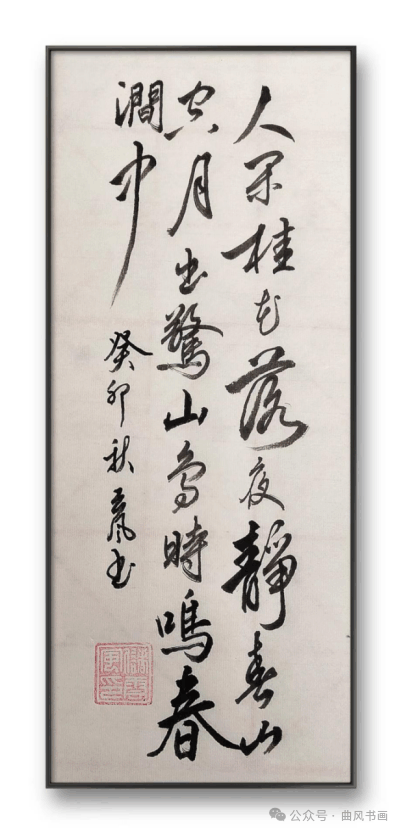 人闲桂花落夜静春山
空月出惊山鸟时鸣春
澗中
癸卯秋 书
公众号 · 曲风书画